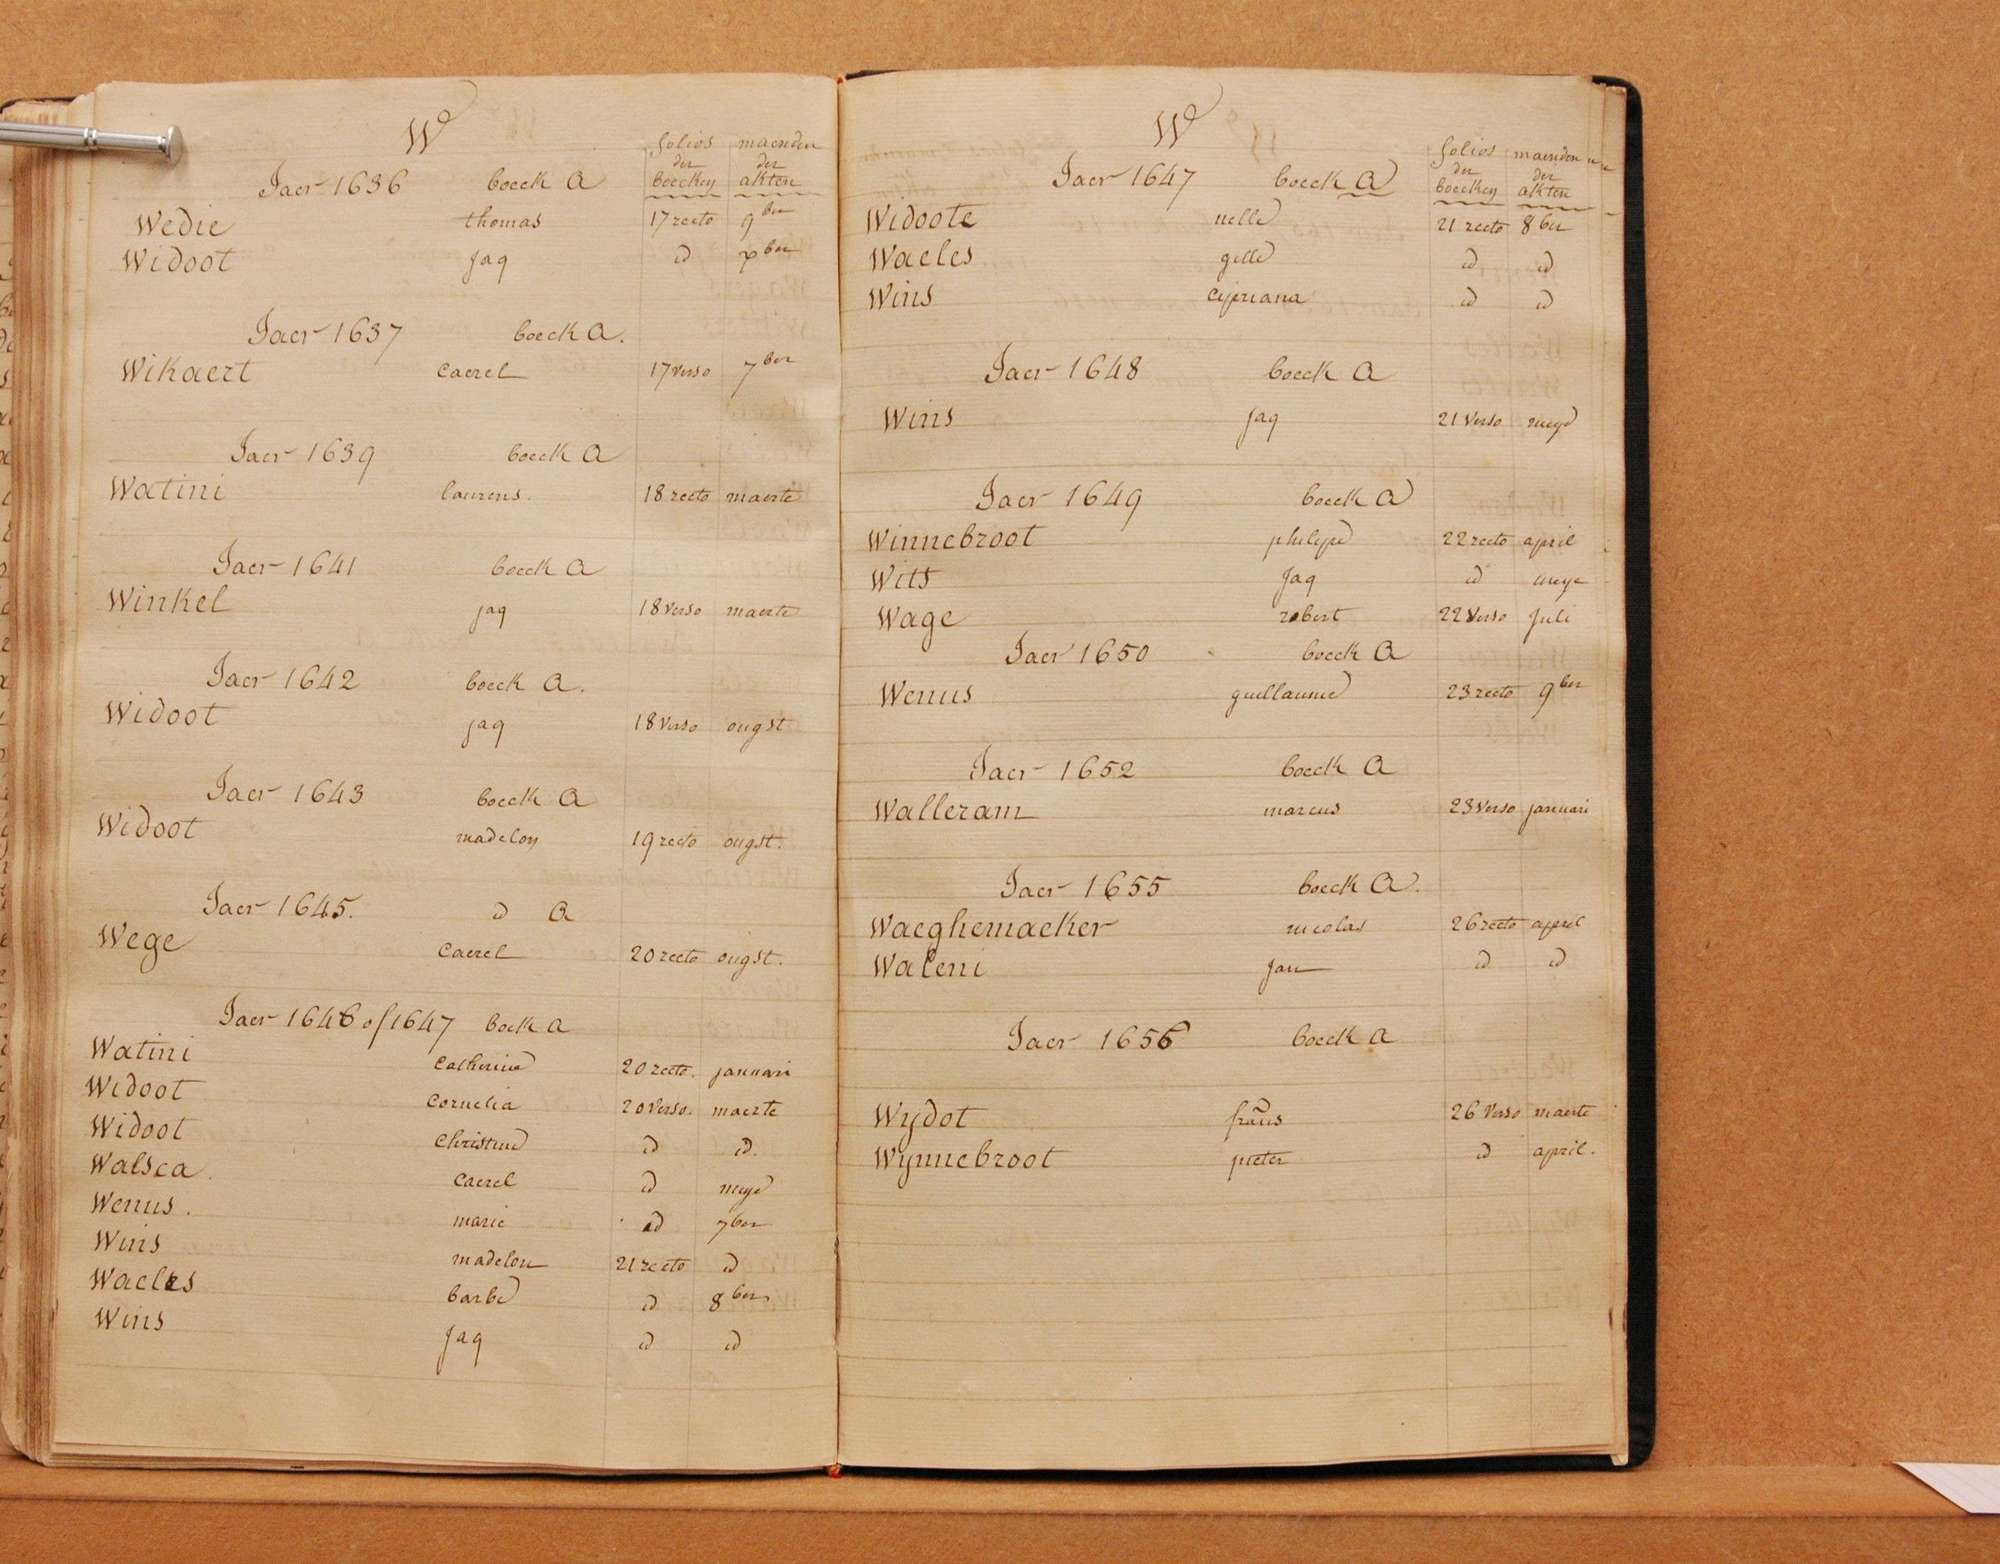 W
folios maenden
der der
Jaer 1636 boeck A boecken akten
Wedie thomas 17 recto 9ber
Widoot jaq id xber
Jaer 1637 boeck A.
Wikaert Caerel 17 verso 7ber
Jaer 1639 boeck A
Watini laurens. 18 recto maerte
Jaer 1641 boeck A
Winkel jaq 18 verso maerte
Jaer 1642 boeck A.
Widoot jaq 18 verso ougst
Jaer 1643 boeck A
Widoot madelon 19 recto ougst.
Jaer 1645. id A
Wege Caerel 20 recto ougst.
Jaer 1646 of 1647 boek A
Watini Catherine 20 recto. januari
Widoot Cornelia 20 verso. maerte
Widoot Christine id id.
Walsca Caerel id meye
Wenus. marie id 7ber
Wins madelon 21 recto id
Waeles barbe id 8ber
Wins Jaq id id
W
folios maenden
der der
Jaer 1647 boeck A boecken akten
Widoote nelle 21 recto 8ber
Waeles gille id id
Wins Cipriana id id
Jaer 1648 boeck A
Wins Jaq 21 verso meye
Jaer 1649 boeck A
Winnebroot philipe 22 recto april
Wits Jaq id meye
Wage robert 22 verso Juli
Jaer 1650 boeck A
Wenus guillaume 23 recto 9ber
Jaer 1652 boeck A
Walleram marcus 23 verso januari
Jaer 1655 boeck A.
Waeghemaeker nicolas 26 recto april
Waleni Jan id id
Jaer 1656 boeck A
Wydot frans 26 verso maerte
Wynnebroot pieter id april.